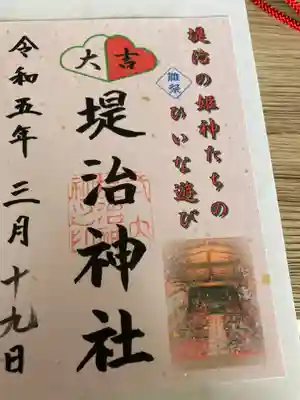 堤治の姫神たちの
ひいな遊び
雛祭
大吉
堤治神社
令和五年三月十九日